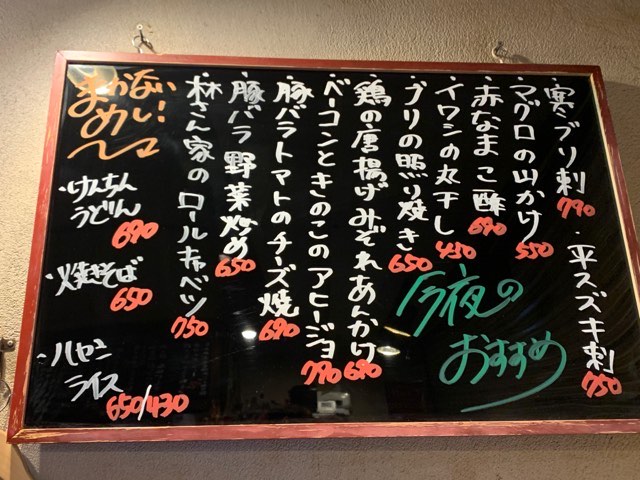 今夜の
おすすめ
・寒ブリ刺 790
・平スズキ刺 750
・マグロの山かけ 550
・赤なまこ酢 690
・イワシの丸干し 450
・ブリの照り焼き 650
・鶏の唐揚げみぞれあんかけ 690
・ベーコンときのこのアヒージョ 790
・豚バラトマトのチーズ焼 690
・豚バラ野菜炒め 650
・林さん家のロールキャベツ 750
まかない
めし!
・けんちん
うどん 690
・焼きそば 650
・ハヤシ
ライス 650/430